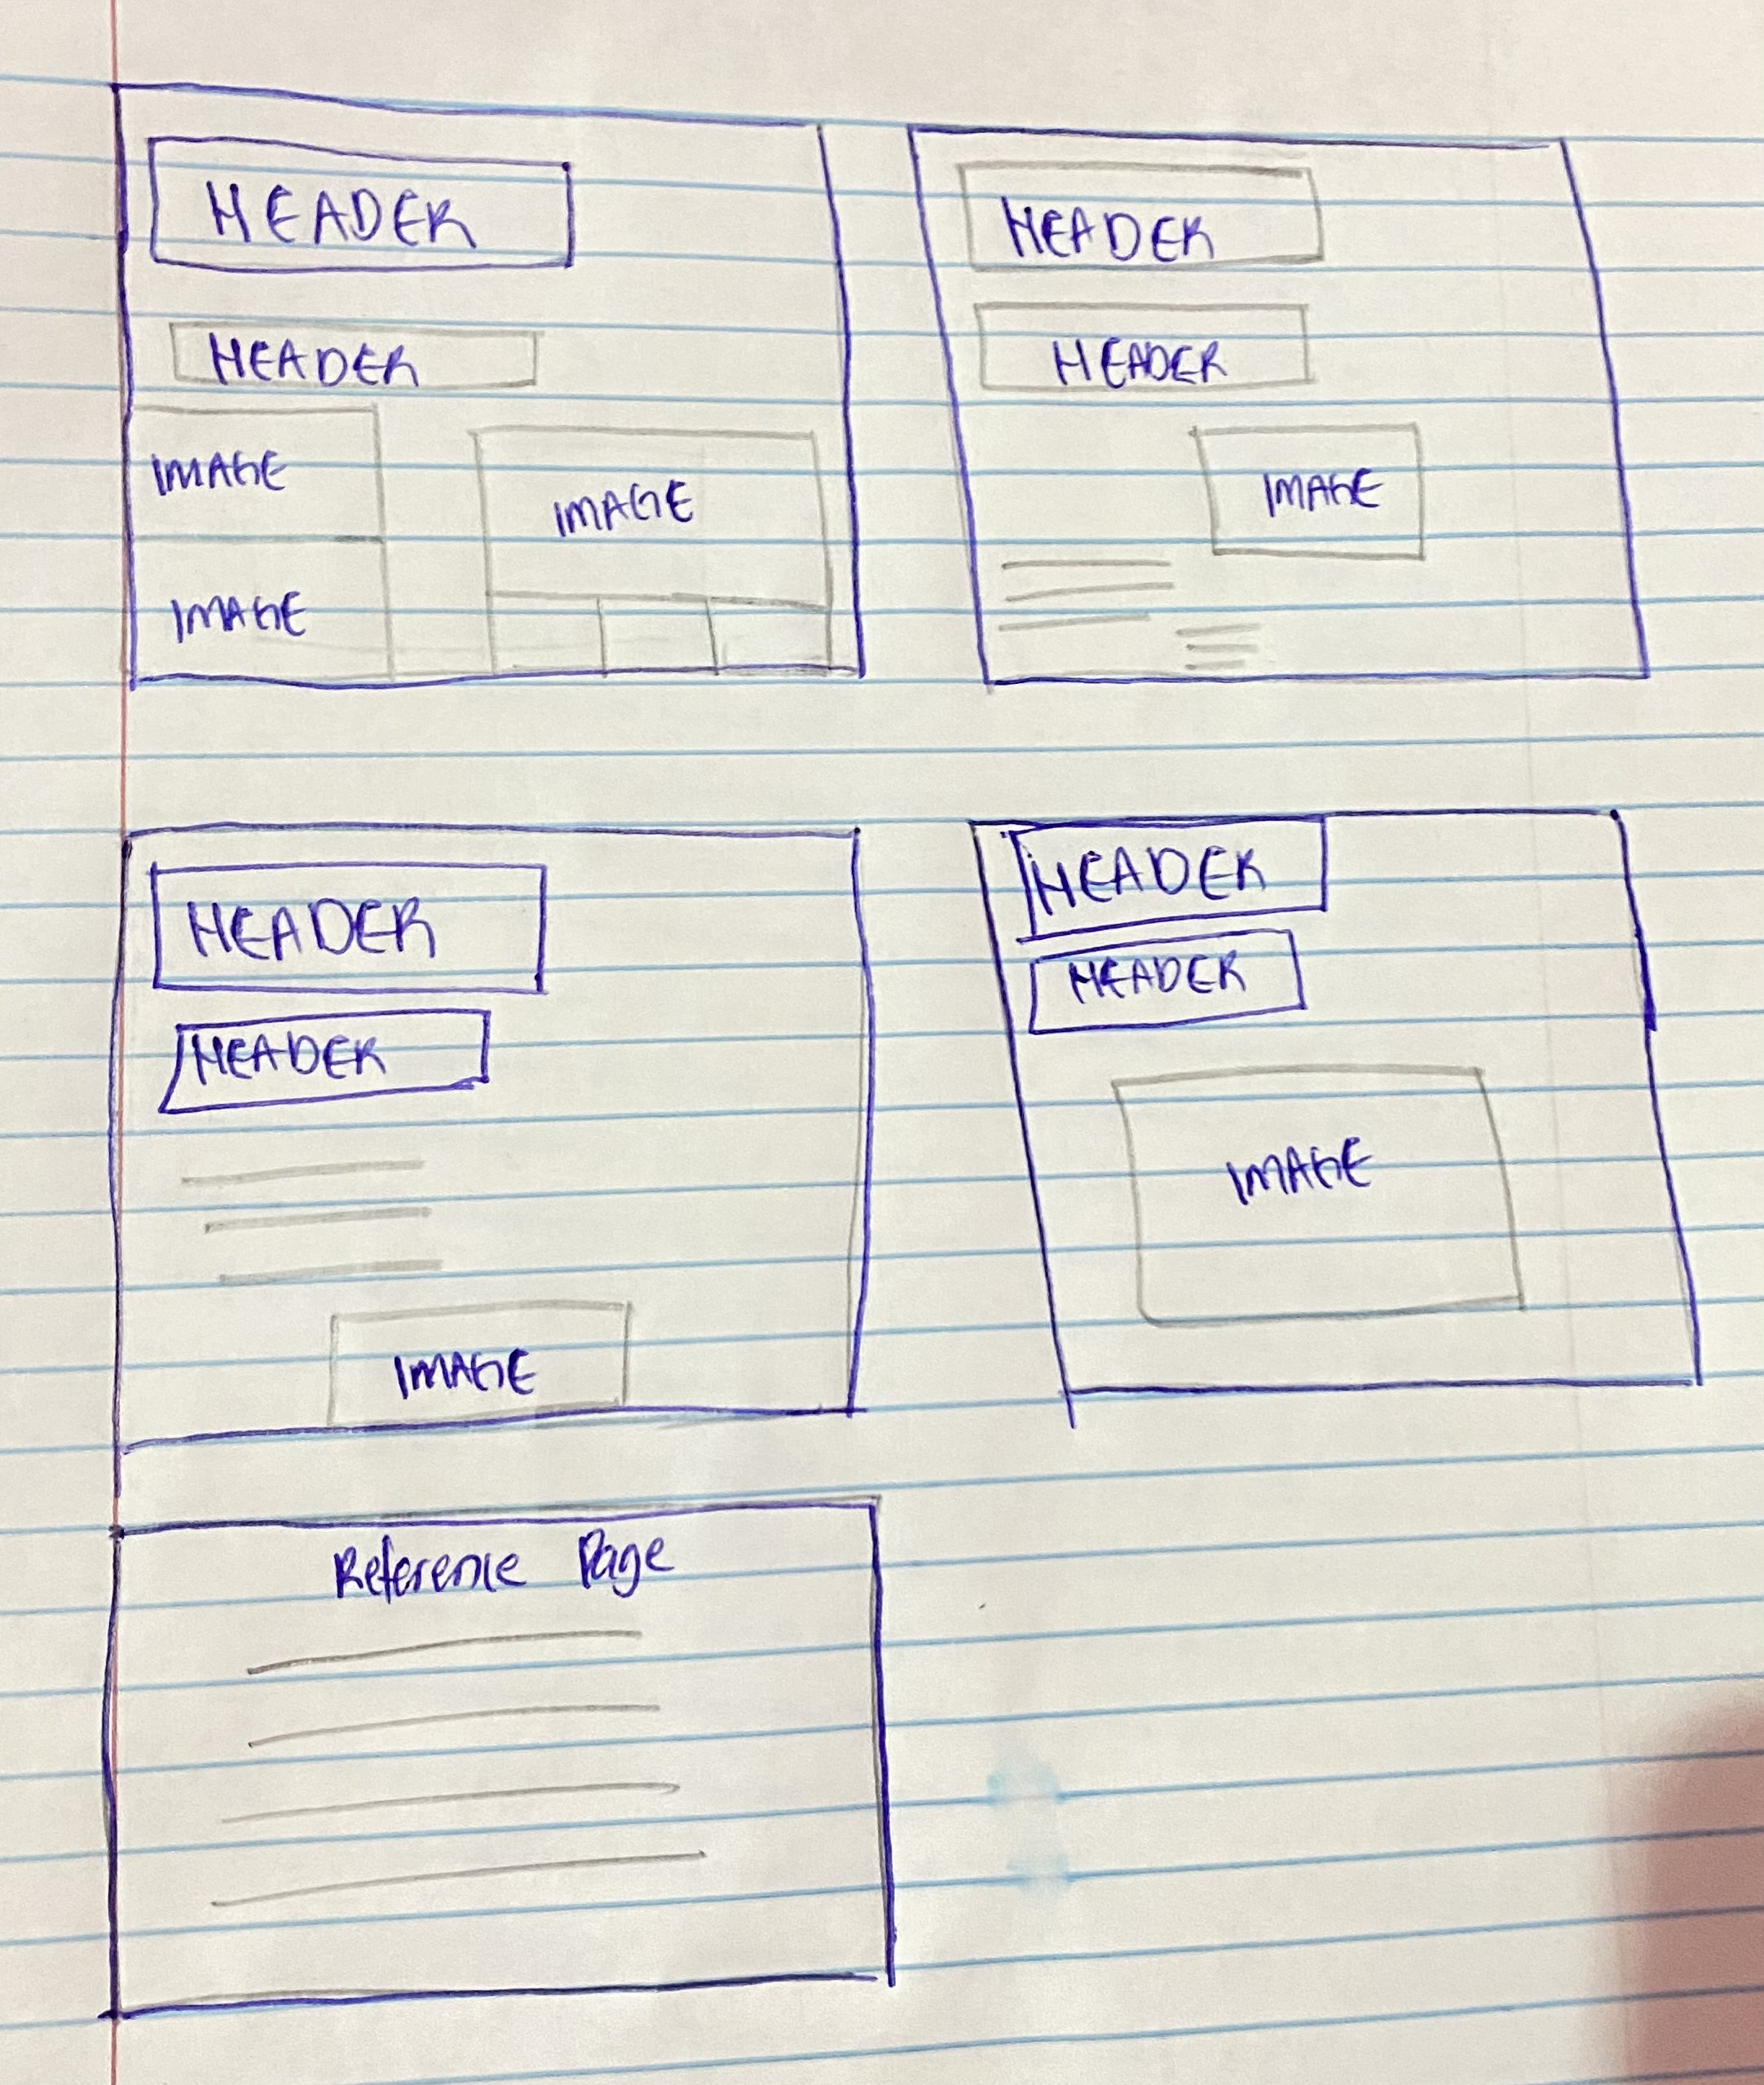 HEADER
HEADER
IMAGE
IMAGE
IMAGE
HEADER
HEADER
IMAGE
HEADER
HEADER
IMAGE
HEADER
HEADER
IMAGE
Reference Page